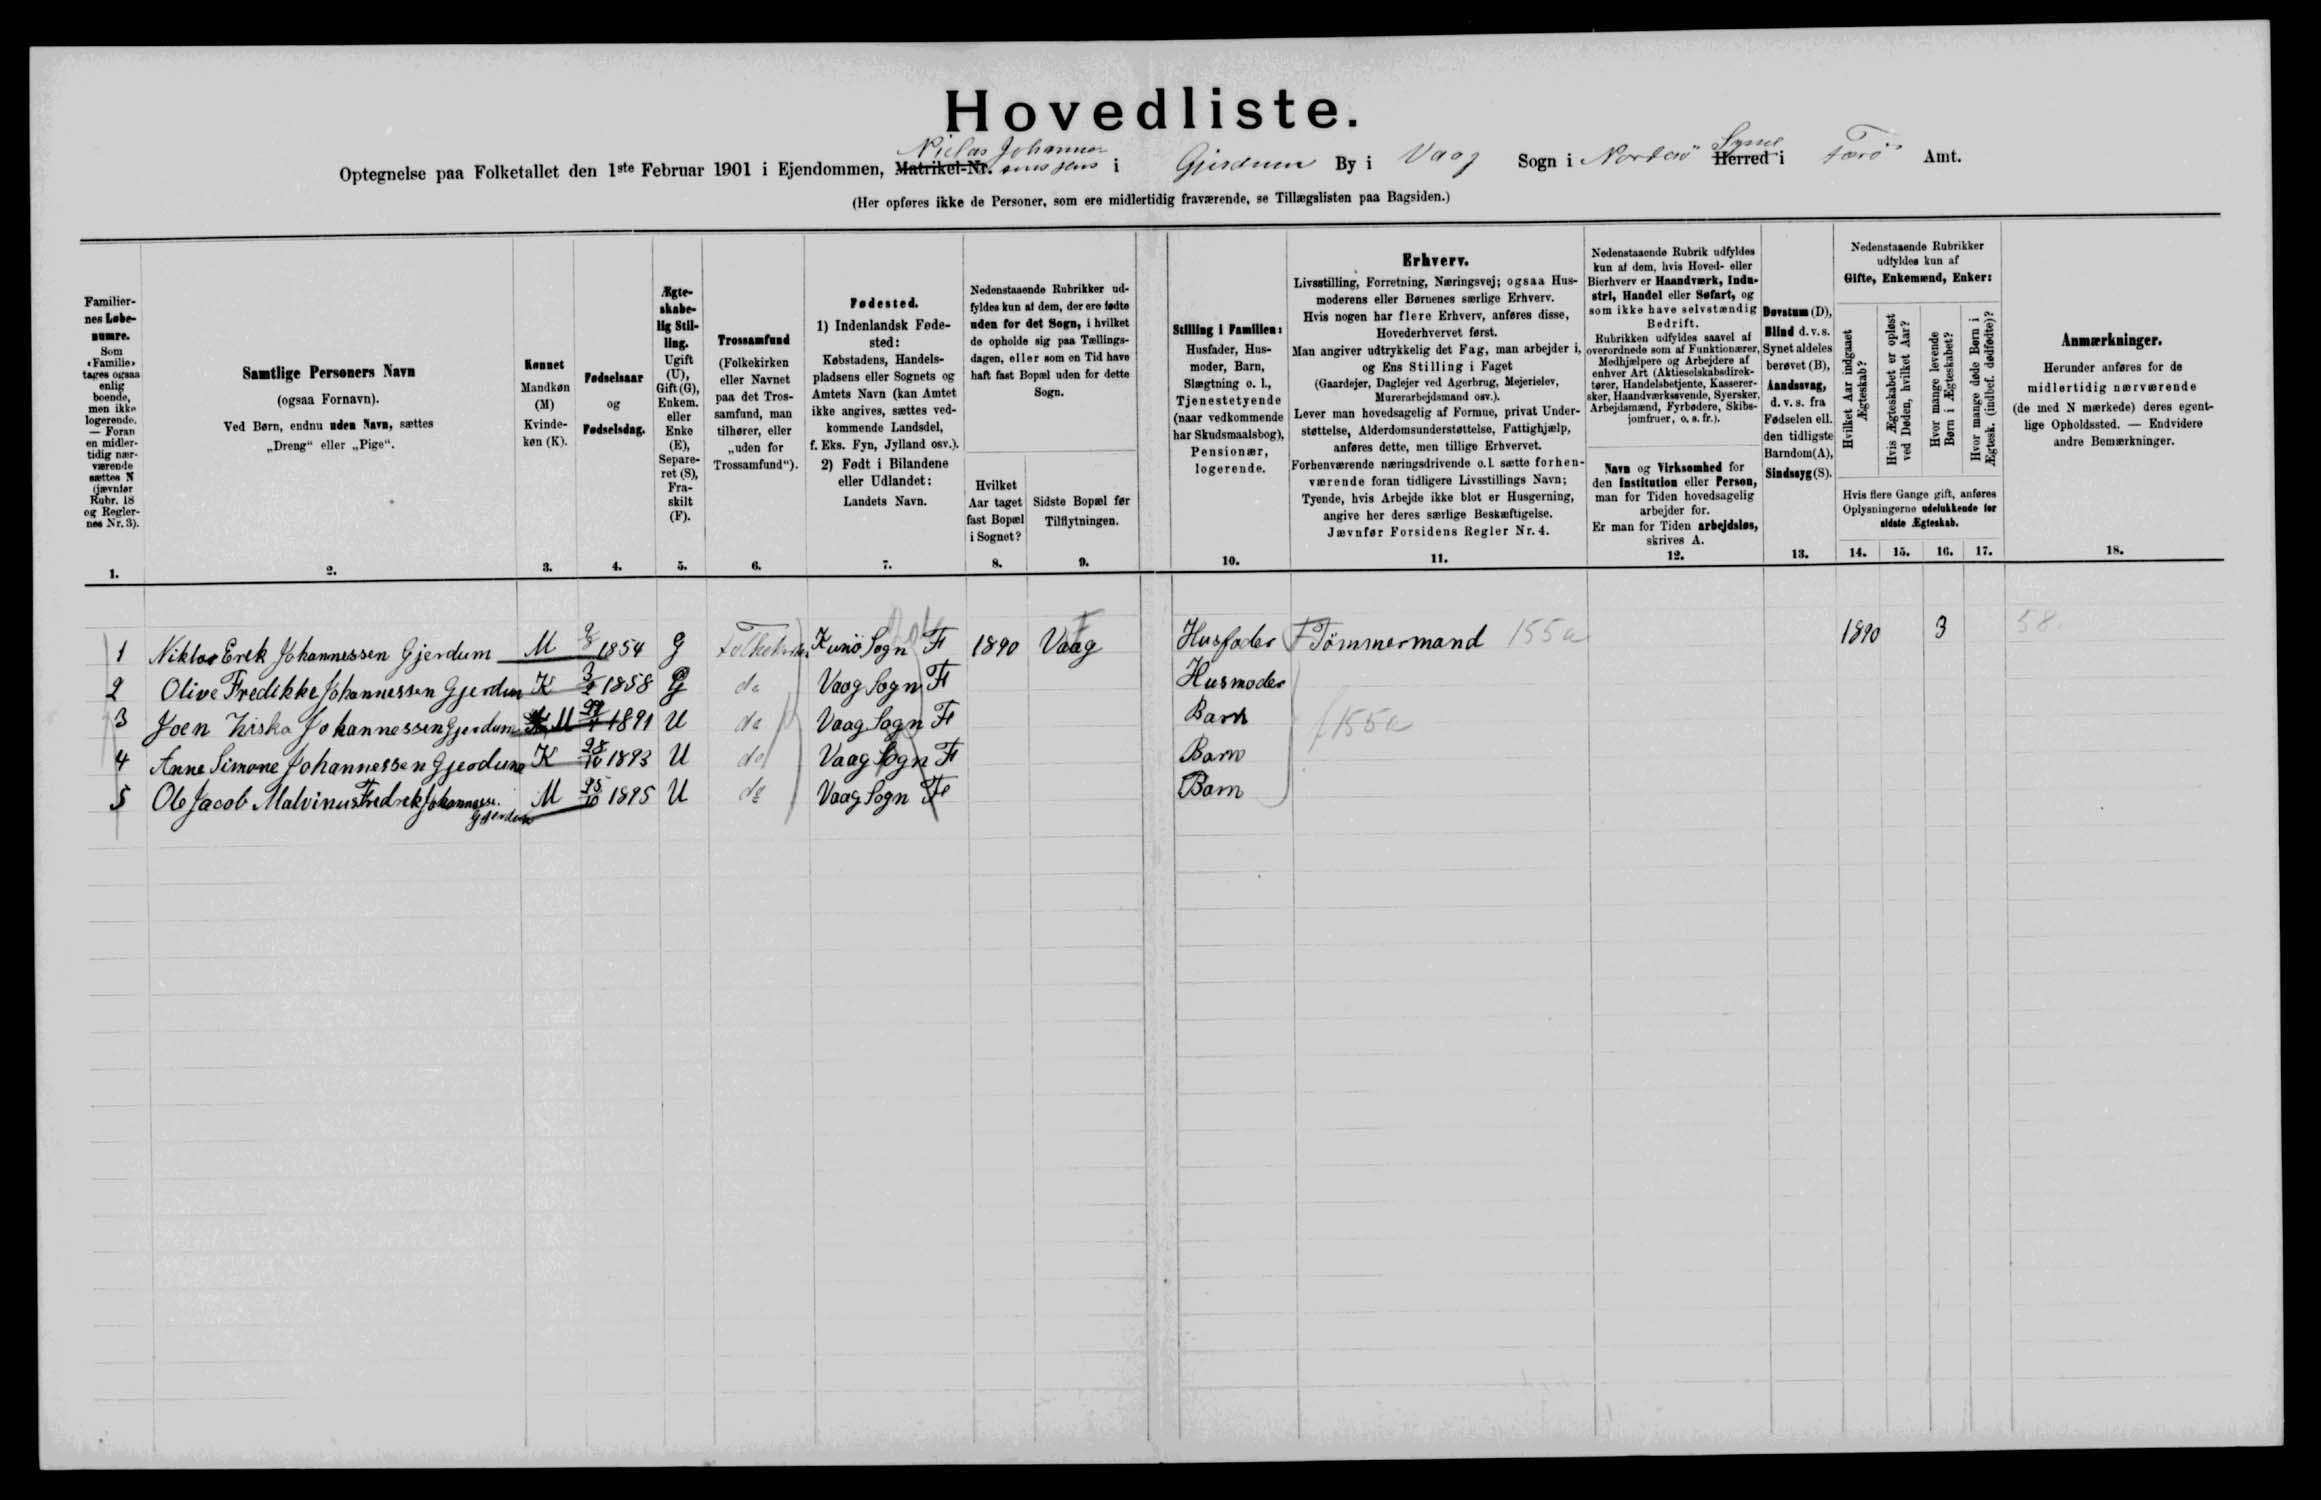 Hovedliste.
Niclas Johannes
Optegnelse paa Folketallet den 1ste Februar 1901 i Ejendommen, Matrikel-Nr. i Gjerdum By i Vaag Sogn i Norderö Syssel Herred i Færö Amt.
(Her opføres ikke de Personer, som ere midlertidig fraværende, se Tillægslisten paa Bagsiden.)
Familiernes Løbenumre.
Som «Familie» tages ogsaa enlig boende, men ikke logerende. — Foran en midlertidig nærværende sættes N (jævnfør Rubr. 18 og Reglernes Nr. 3).
1.
Samtlige Personers Navn
(ogsaa Fornavn).
Ved Børn, endnu uden Navn, sættes
„Dreng“ eller „Pige“.
2.
Kønnet
Mandkøn (M)
Kvindekøn (K).
3.
Fødselsaar
og
Fødselsdag.
4.
Ægteskabelig Stilling.
Ugift (U), Gift (G), Enkem. eller Enke (E), Separeret (S), Fraskilt (F).
5.
Trossamfund
(Folkekirken eller Navnet paa det Trossamfund, man tilhører, eller „uden for Trossamfund“).
6.
Fødested.
1) Indenlandsk Fødested:
Købstadens, Handelspladsens eller Sognets og Amtets Navn (kan Amtet ikke angives, sættes vedkommende Landsdel, f. Eks. Fyn, Jylland osv.).
2) Født i Bilandene eller Udlandet:
Landets Navn.
7.
Nedenstaaende Rubrikker udfyldes kun af dem, der ere fødte uden for det Sogn, i hvilket de opholde sig paa Tællingsdagen, eller som en Tid have haft fast Bopæl uden for dette Sogn.
Hvilket Aar taget fast Bopæl i Sognet?
8.
Sidste Bopæl før Tilflytningen.
9.
Stilling i Familien:
Husfader, Husmoder, Barn, Slægtning o. l., Tjenestetyende (naar vedkommende har Skudsmaalsbog), Pensionær, logerende.
10.
Erhverv.
Livsstilling, Forretning, Næringsvej; ogsaa Husmoderens eller Børnenes særlige Erhverv.
Hvis nogen har flere Erhverv, anføres disse, Hovederhvervet først.
Man angiver udtrykkelig det Fag, man arbejder i, og Ens Stilling i Faget
(Gaardejer, Daglejer ved Agerbrug, Mejerielev, Murerarbejdsmand osv.).
Lever man hovedsagelig af Formue, privat Understøttelse, Alderdomsunderstøttelse, Fattighjælp, anføres dette, men tillige Erhvervet.
Forhenværende næringsdrivende o. l. sætte forhenværende foran tidligere Livsstillings Navn;
Tyende, hvis Arbejde ikke blot er Husgerning, angive her deres særlige Beskæftigelse.
Jævnfør Forsidens Regler Nr. 4.
11.
Nedenstaaende Rubrik udfyldes kun af dem, hvis Hoved- eller Bierhverv er Haandværk, Industri, Handel eller Søfart, og som ikke have selvstændig Bedrift.
Rubrikken udfyldes saavel af overordnede som af Funktionærer, Medhjælpere og Arbejdere af enhver Art (Aktieselskabsdirektører, Handelsbetjente, Kasserersker, Haandværkssvende, Syersker, Arbejdsmænd, Fyrbødere, Skibsjomfruer, o. s. fr.).
Navn og Virksomhed for den Institution eller Person, man for Tiden hovedsagelig arbejder for.
Er man for Tiden arbejdsløs, skrives A.
12.
Døvstum (D), Blind d. v. s. Synet aldeles berøvet (B), Aandssvag, d. v. s. fra Fødselen ell. den tidligste Barndom (A), Sindssyg (S).
13.
Nedenstaaende Rubrikker udfyldes kun af
Gifte, Enkemænd, Enker:
Hvilket Aar indgaaet Ægteskab?
Hvis Ægteskabet er opløst ved Døden, hvilket Aar?
Hvor mange levende Børn i Ægteskabet?
Hvor mange døde Børn i Ægtesk. (indbef. dødfødte)?
Hvis flere Gange gift, anføres Oplysningerne udelukkende for sidste Ægteskab.
14. 15. 16. 17.
Anmærkninger.
Herunder anføres for de midlertidig nærværende (de med N mærkede) deres egentlige Opholdssted. — Endvidere andre Bemærkninger.
18.
1 Niklas Erek Johannessen Gjerdum M 1854 G Folkekirken Kunö Sogn F 1890 Vaag Husfader Tömmermand 155a 1890 3 58.
2 Olive Fredikke Johannessen Gjerdum K 1858 G do Vaag Sogn F Husmoder
3 Joen Ziska Johannessen Gjerdum M 1891 U do Vaag Sogn F Barn 155a
4 Anne Simone Johannessen Gjerdum K 28/10 1893 U do Vaag Sogn F Barn
5 Ole Jacob Malvinus Fredrek Johannesse. Gjerdum M 25/10 1895 U do Vaag Sogn F Barn